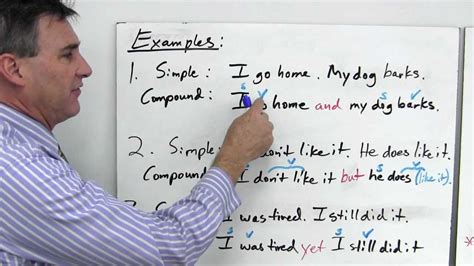 Examples:
1. Simple: I go home. My dog barks.
S V S V
Compound: I home and my dog barks.
V
2. Simple don't like it. He does like it.
S V S V
Compound I don't like it but he does (like it).
I was tired. I still did it.
S V S V
I was tired yet I still did it.